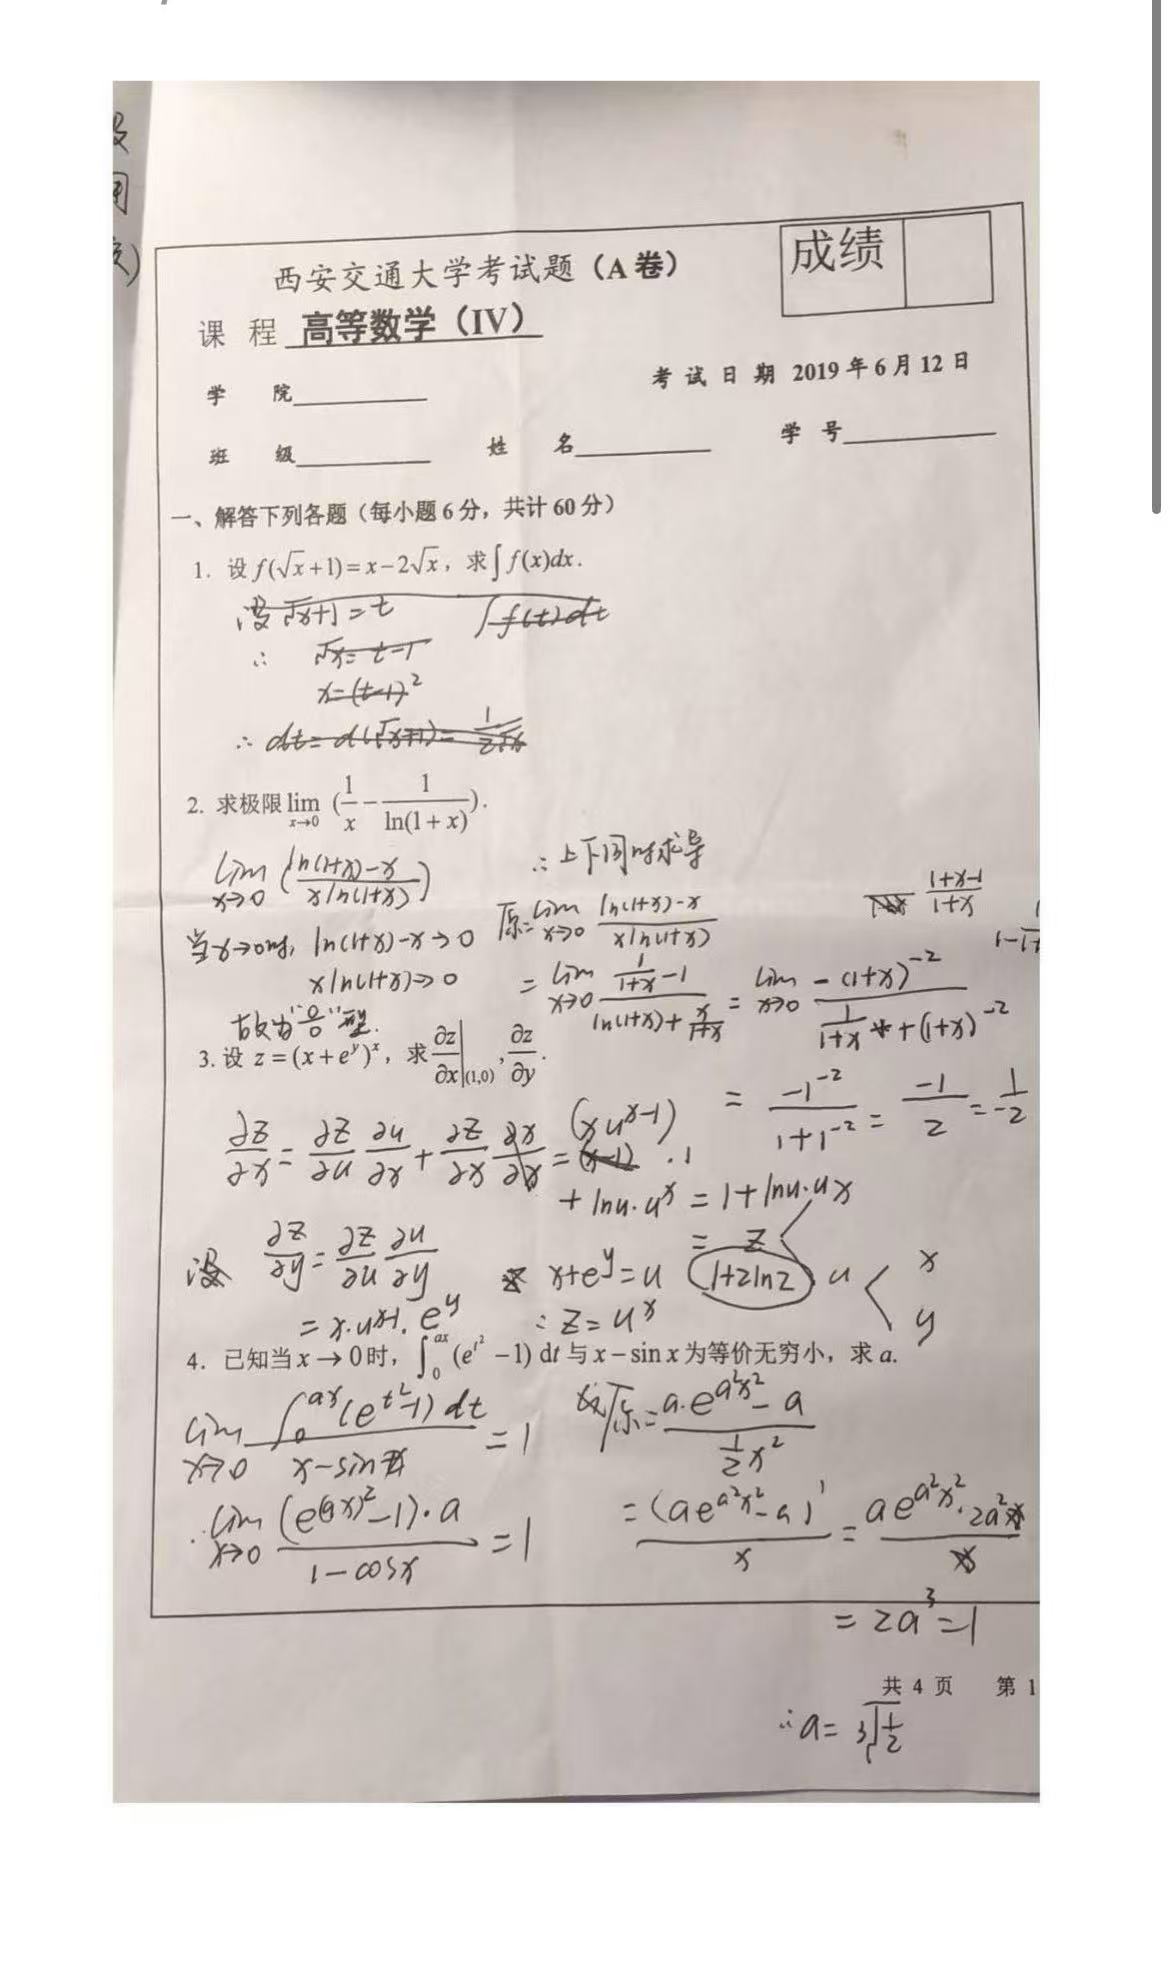 西安交通大学考试题（A卷）
成绩
课 程 高等数学（IV）
考 试 日 期 2019 年 6 月 12 日
学 院
班 级 姓 名 学 号
一、解答下列各题（每小题 6 分，共计 60 分）
1. 设 f(√x+1)=x−2√x，求∫f(x)dx.
设 √x+1=t ∫f(t)dt
∴ √x=t−1
x=(t−1)²
∴ dt=d(√x+1)=1/(2√x)
2. 求极限 lim_{x→0} (1/x − 1/ln(1+x)).
lim_{x→0} ((ln(1+x)−x)/(xln(1+x))) ∴上下同时求导
当x→0时, ln(1+x)−x→0 原=lim_{x→0} (ln(1+x)−x)/(xln(1+x)) (1+x−1)/(1+x)
xln(1+x)→0 =lim_{x→0} (1/(1+x)−1)/(ln(1+x)+x/(1+x)) = lim_{x→0} (−(1+x)^{-2})/(1/(1+x)+(1+x)^{-2})
故为"0/0"型.
= (−1^{-2})/(1+1^{-2}) = −1/2 = 1/−2
3. 设 z=(x+e^y)^x，求 ∂z/∂x|_{(1,0)}, ∂z/∂y.
∂z/∂x = ∂z/∂u ∂u/∂x + ∂z/∂x ∂x/∂x = (xu^{x−1}) (x−1) · 1
+ lnu·u^x = 1+lnu·ux
设 ∂z/∂y = ∂z/∂u ∂u/∂y x+e^y=u = z 1+2ln2 u x
= x·u^{x−1}·e^y ∴z=u^x y
4. 已知当 x→0时，∫_0^{ax}(e^{t²}−1) dt 与 x−sin x 为等价无穷小，求 a.
lim_{x→0} (∫_0^{ax}(e^{t²}−1)dt)/(x−sinx) = 1 故原=(a·e^{a²x²}−a)/(1/2 x²)
∴lim_{x→0} ((e^{(ax)²}−1)·a)/(1−cosx) = 1 =(ae^{a²x²}−a)'/x = (ae^{a²x²}·2a²x)/x
= 2a³=1
共 4 页 第 1
∴a= ³√(1/2)